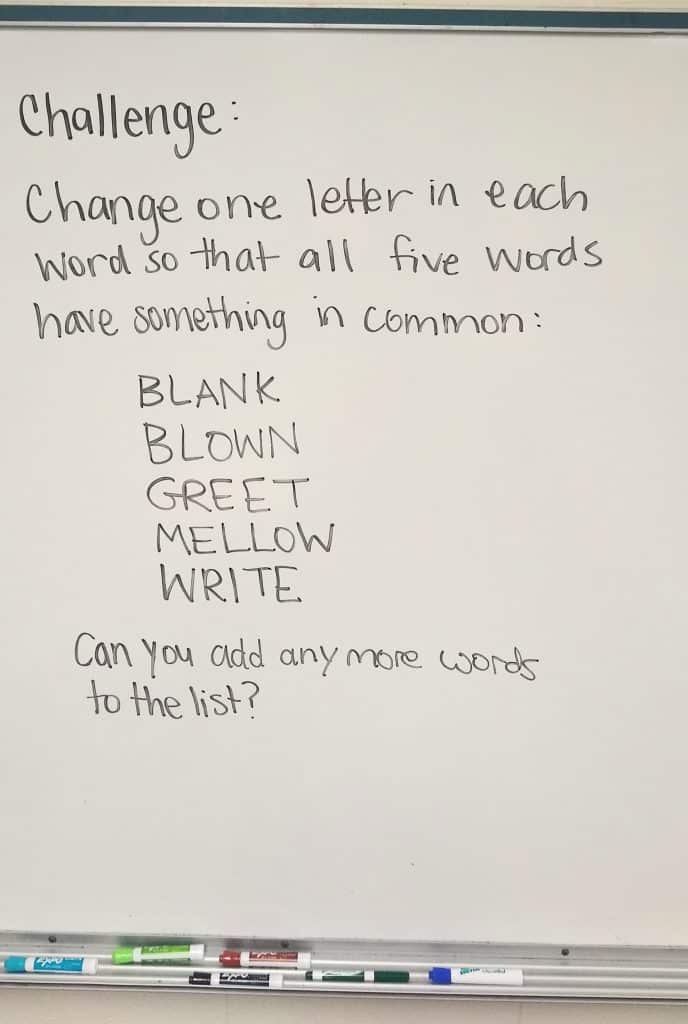 Challenge:
Change one letter in each
word so that all five words
have something in common:
BLANK
BLOWN
GREET
MELLOW
WRITE
Can you add any more words
to the list?
EXPO
EXPO